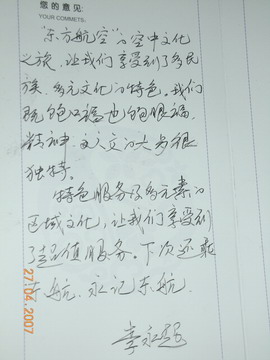 您的意见:
YOUR COMMETS:
"东方航空"的空中文化
之旅,让我们享受到了多民
族、多元文化的特色。我们
既饱口福也饱眼福,
精神、文
独特。
特色服务及多元素的
区域文化,让我们享受到
了超值服务。下次还乘
东航、永记东航.
李永
27.04.2007